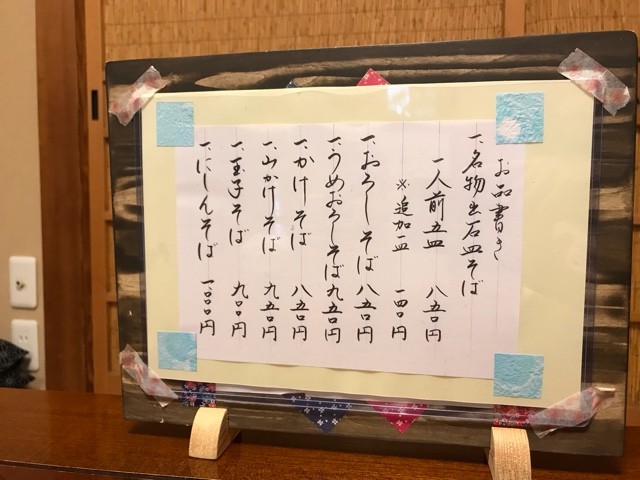 お品書き
一、名物出石皿そば
一人前五皿 八五〇円
※追加一皿 一四〇円
一、おろしそば 八五〇円
一、うめおろしそば 九五〇円
一、かけそば 八五〇円
一、山かけそば 九五〇円
一、玉子そば 九〇〇円
一、にしんそば 一、〇〇〇円